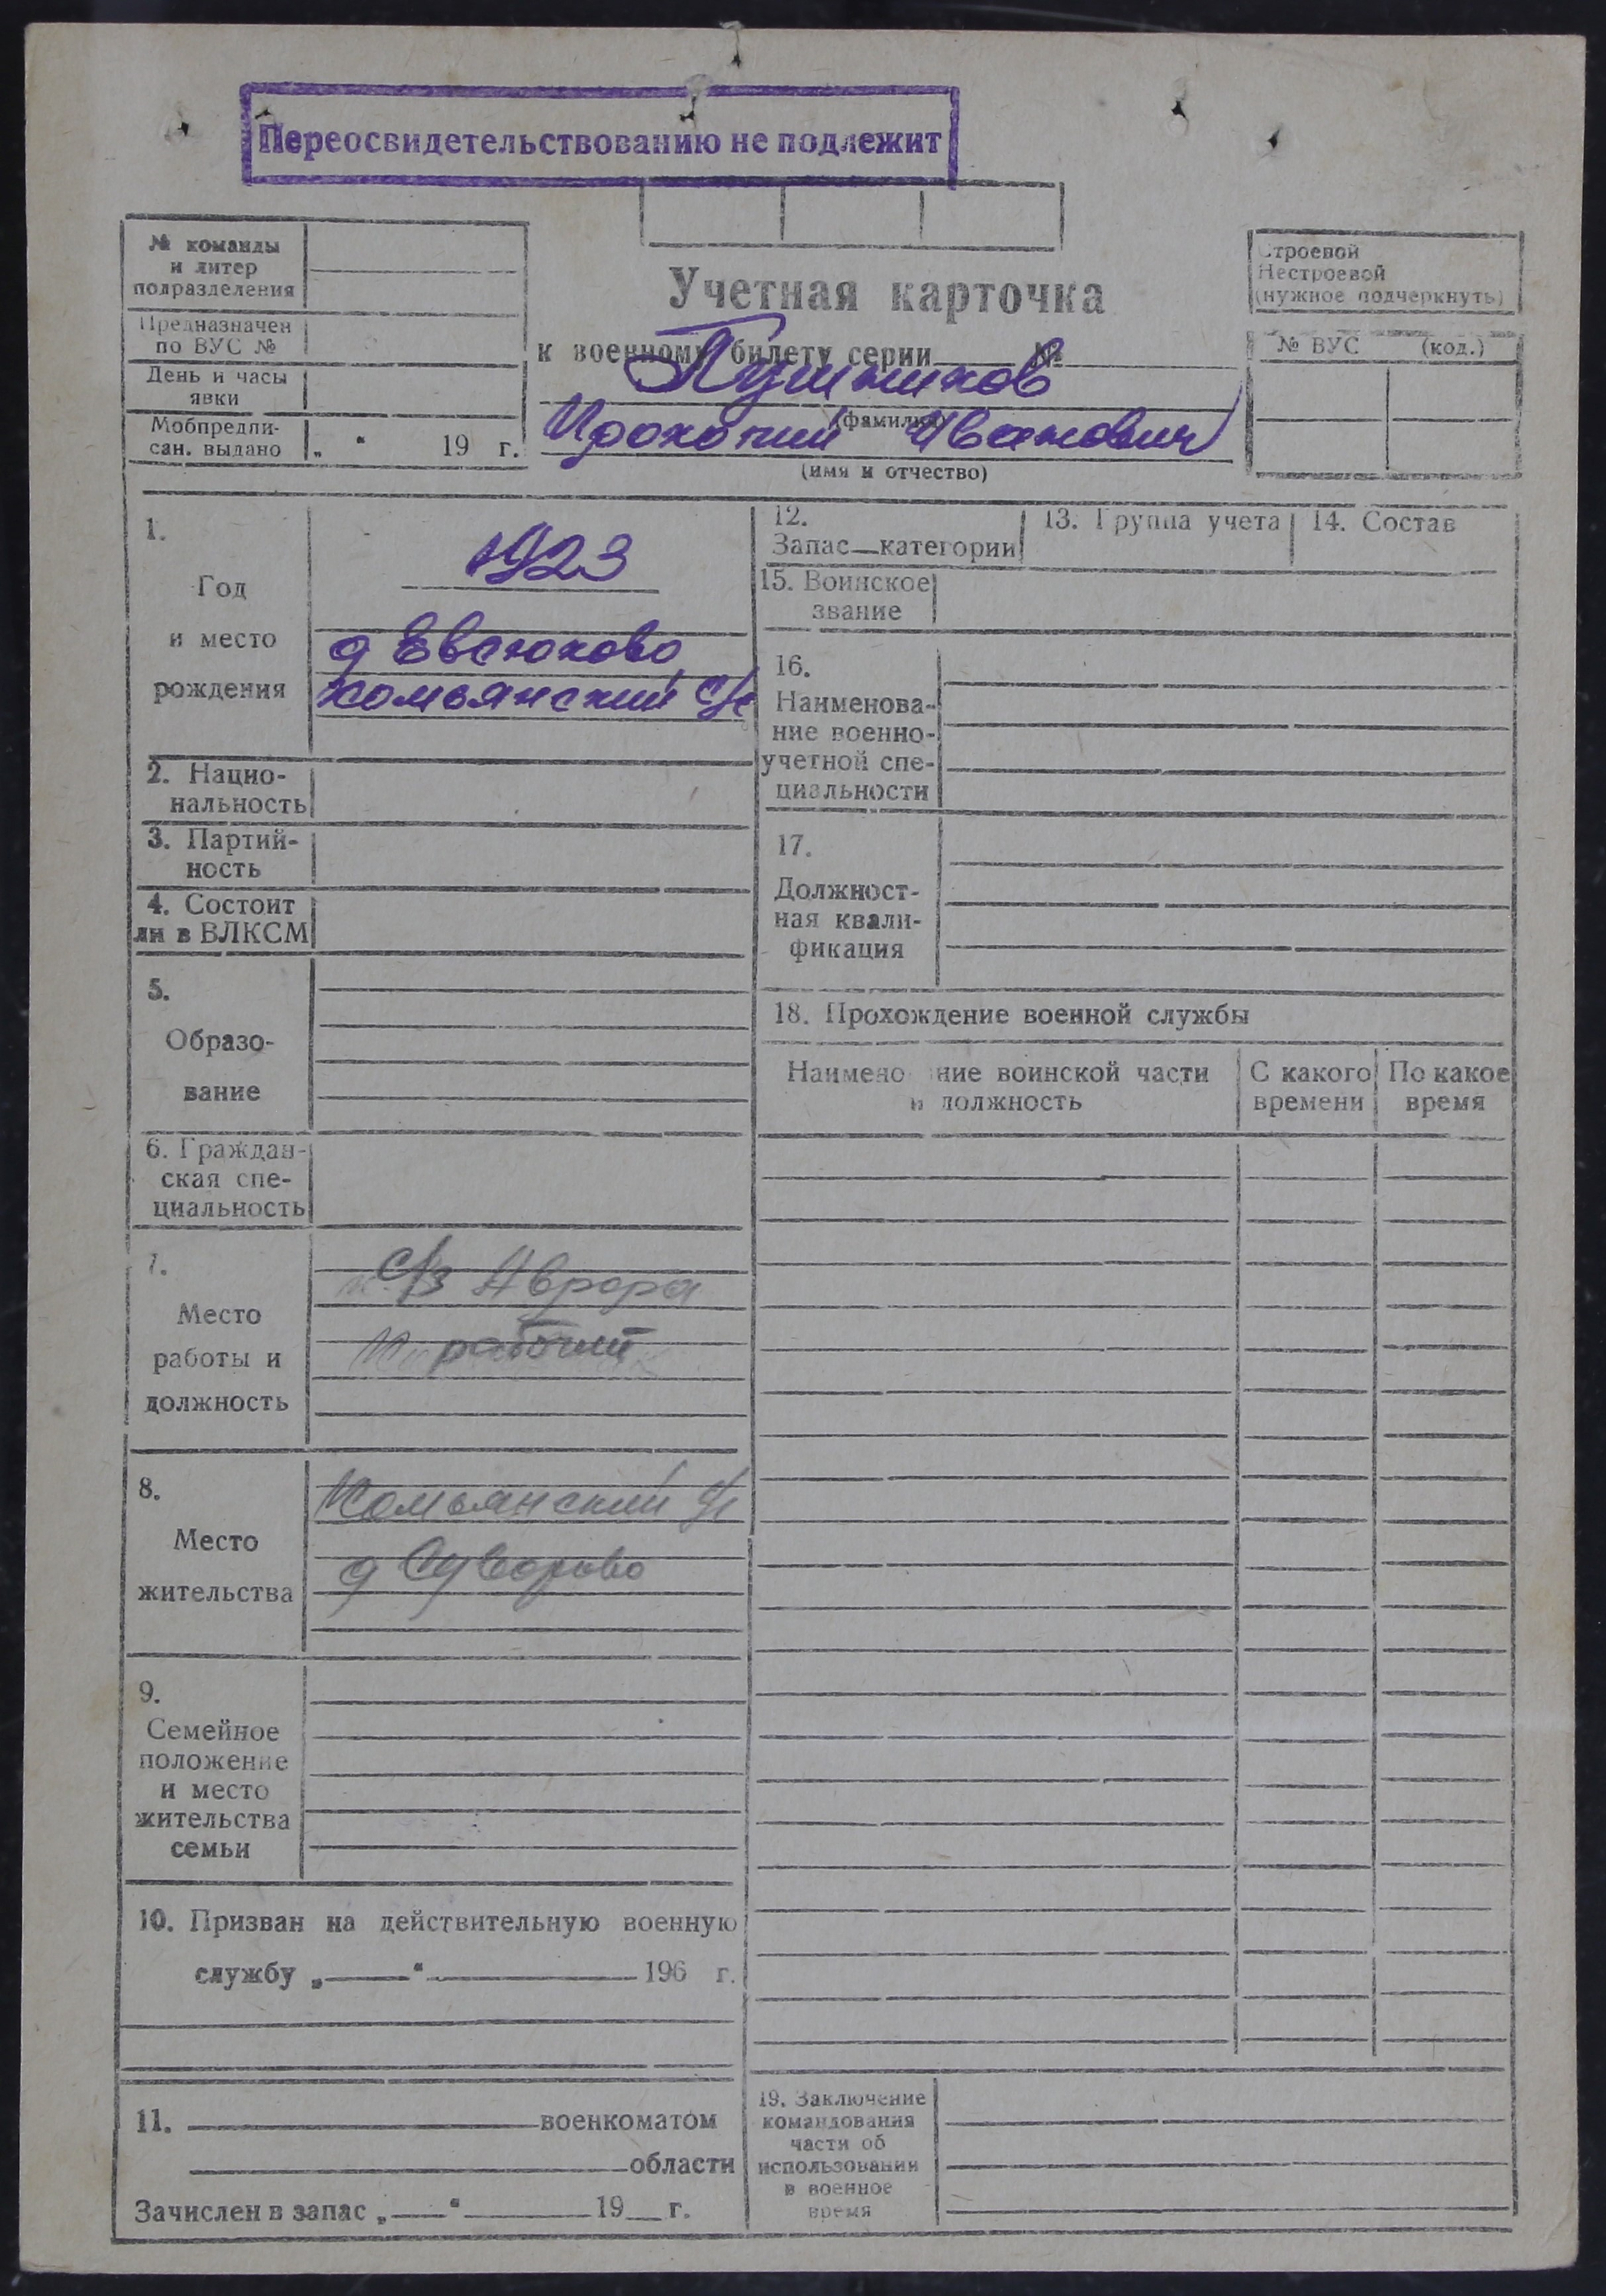 Переосвидетельствованию не подлежит
№ команды
и литер
подразделения
Предназначен
по ВУС №
День и часы
явки
Мобпредпи-
сан. выдано „ “ 19 г.
Учетная карточка
к военному билету серии №
(фамилия)
Прокопий Иванович
(имя и отчество)
Строевой
Нестроевой
(нужное подчеркнуть)
№ ВУС (код.)
1.
Год
и место
рождения
1923
д Евсюково
Комьянский с/с
2. Нацио-
нальность
3. Партий-
ность
4. Состоит
ли в ВЛКСМ
5.
Образо-
вание
6. Граждан-
ская спе-
циальность
7.
Место
работы и
должность
с/з Аврора
рабочий
8.
Место
жительства
Комьянский с/с
д Суворово
9.
Семейное
положение
и место
жительства
семьи
10. Призван на действительную военную
службу „ “ 196 г.
11. военкоматом
области
Зачислен в запас „ “ 19 г.
12.
Запас категории
13. Группа учета
14. Состав
15. Воинское
звание
16.
Наименова-
ние военно-
учетной спе-
циальности
17.
Должност-
ная квали-
фикация
18. Прохождение военной службы
Наименование воинской части
и должность
С какого
времени
По какое
время
19. Заключение
командования
части об
использовании
в военное
время